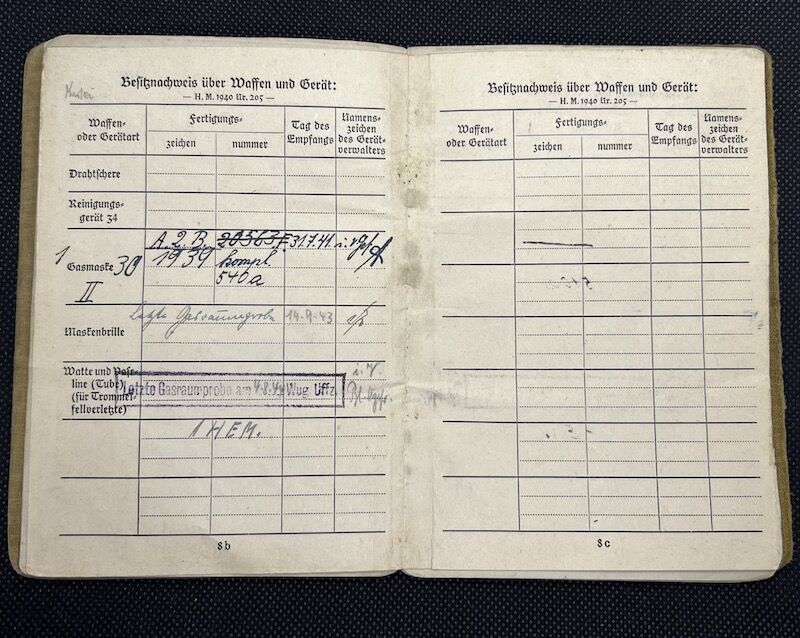 Besitznachweis über Waffen und Gerät:
— H. M. 1940 Nr. 205 —
Waffen- oder Gerätart
Fertigungs-
zeichen
nummer
Tag des Empfangs
Namens-zeichen des Gerät-verwalters
Drahtschere
Reinigungs-
gerät 34
A. 2. B. 20563F 31.7.41
1 Gasmaske 30 1939 kompl.
II 540a
Letzte Gasraumprobe 14-9-43
Maskenbrille
Watte und Vase-
line (Tube)
(für Trommel-
fellverletzte)
Letzte Gasraumprobe am 4.8.44 Wug. Uffz.
1 HEM.
8b
Besitznachweis über Waffen und Gerät:
— H. M. 1940 Nr. 205 —
Waffen- oder Gerätart
Fertigungs-
zeichen
nummer
Tag des Empfangs
Namens-zeichen des Gerät-verwalters
8c